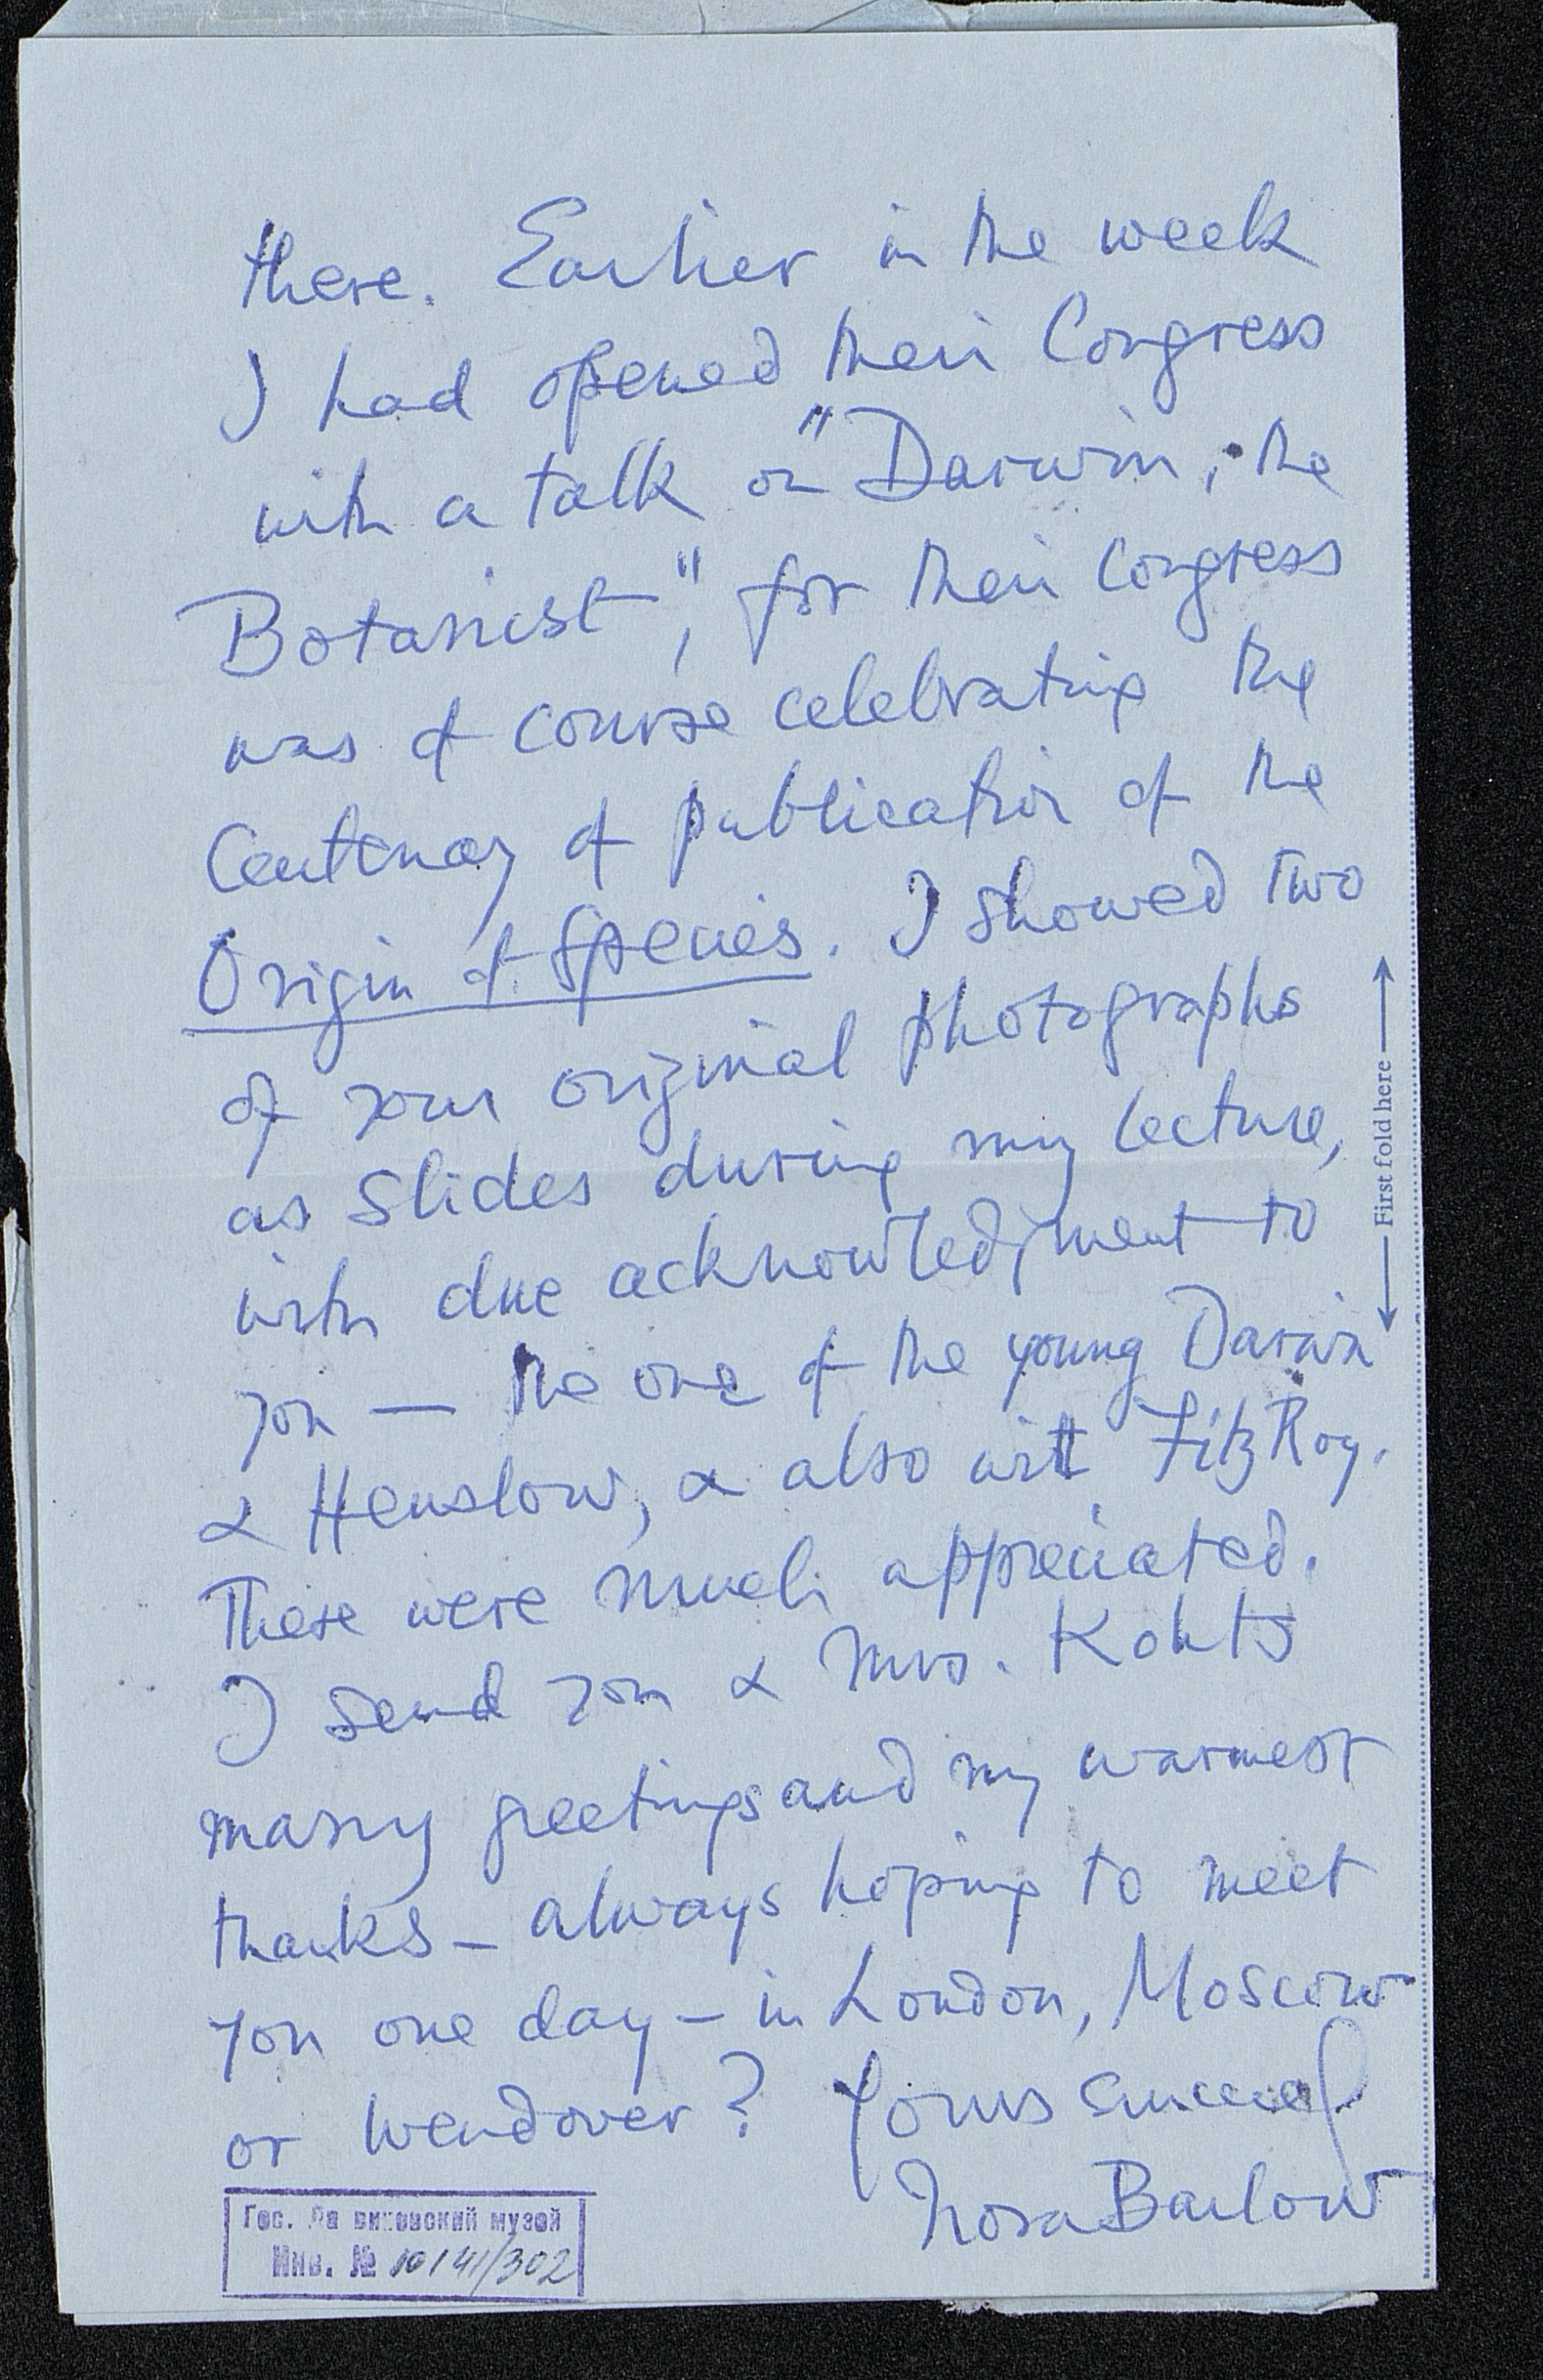 there. Earlier in the week
I had opened their Congress
with a talk on "Darwin, the
Botanist", for their Congress
was of course celebrating the
Centenary of publication of the
Origin of Species. I showed two
of your original photographs
as slides during my lecture,
with due acknowledgment to
you — the one of the young Darwin
& Henslow, & also with FitzRoy.
These were much appreciated.
I send you & Mrs. Kohts
many greetings and my warmest
thanks — always hoping to meet
you one day — in London, Moscow
or Wendover? Yours sincerely
Nora Barlow
← First fold here →
Гос. Да виновский музей
Инв. № 10141/302